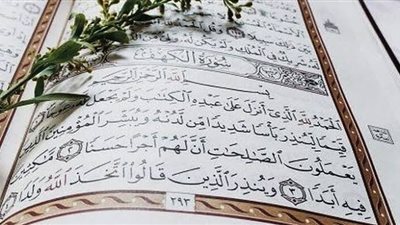 فِي ٱلْمُلْكِ وَلَمْ يَكُن لَّهُۥ وَلِىٌّ
سُورَةُ الْكَهْفِ
بِسْمِ ٱللَّهِ ٱلرَّحْمَٰنِ ٱلرَّحِيمِ
ٱلْحَمْدُ لِلَّهِ ٱلَّذِىٓ أَنزَلَ عَلَىٰ عَبْدِهِ ٱلْكِتَٰبَ وَلَمْ يَجْعَل
قَيِّمًا لِّيُنذِرَ بَأْسًا شَدِيدًا مِّن لَّدُنْهُ وَيُبَشِّرَ ٱلْمُؤْمِنِينَ ٱلَّذِينَ
يَعْمَلُونَ ٱلصَّٰلِحَٰتِ أَنَّ لَهُمْ أَجْرًا حَسَنًا ٢ مَّٰكِثِينَ
فِيهِ أَبَدًا ٣ وَيُنذِرَ ٱلَّذِينَ قَالُوا۟ ٱتَّخَذَ ٱللَّهُ وَلَدًا ٤
٢٩٣